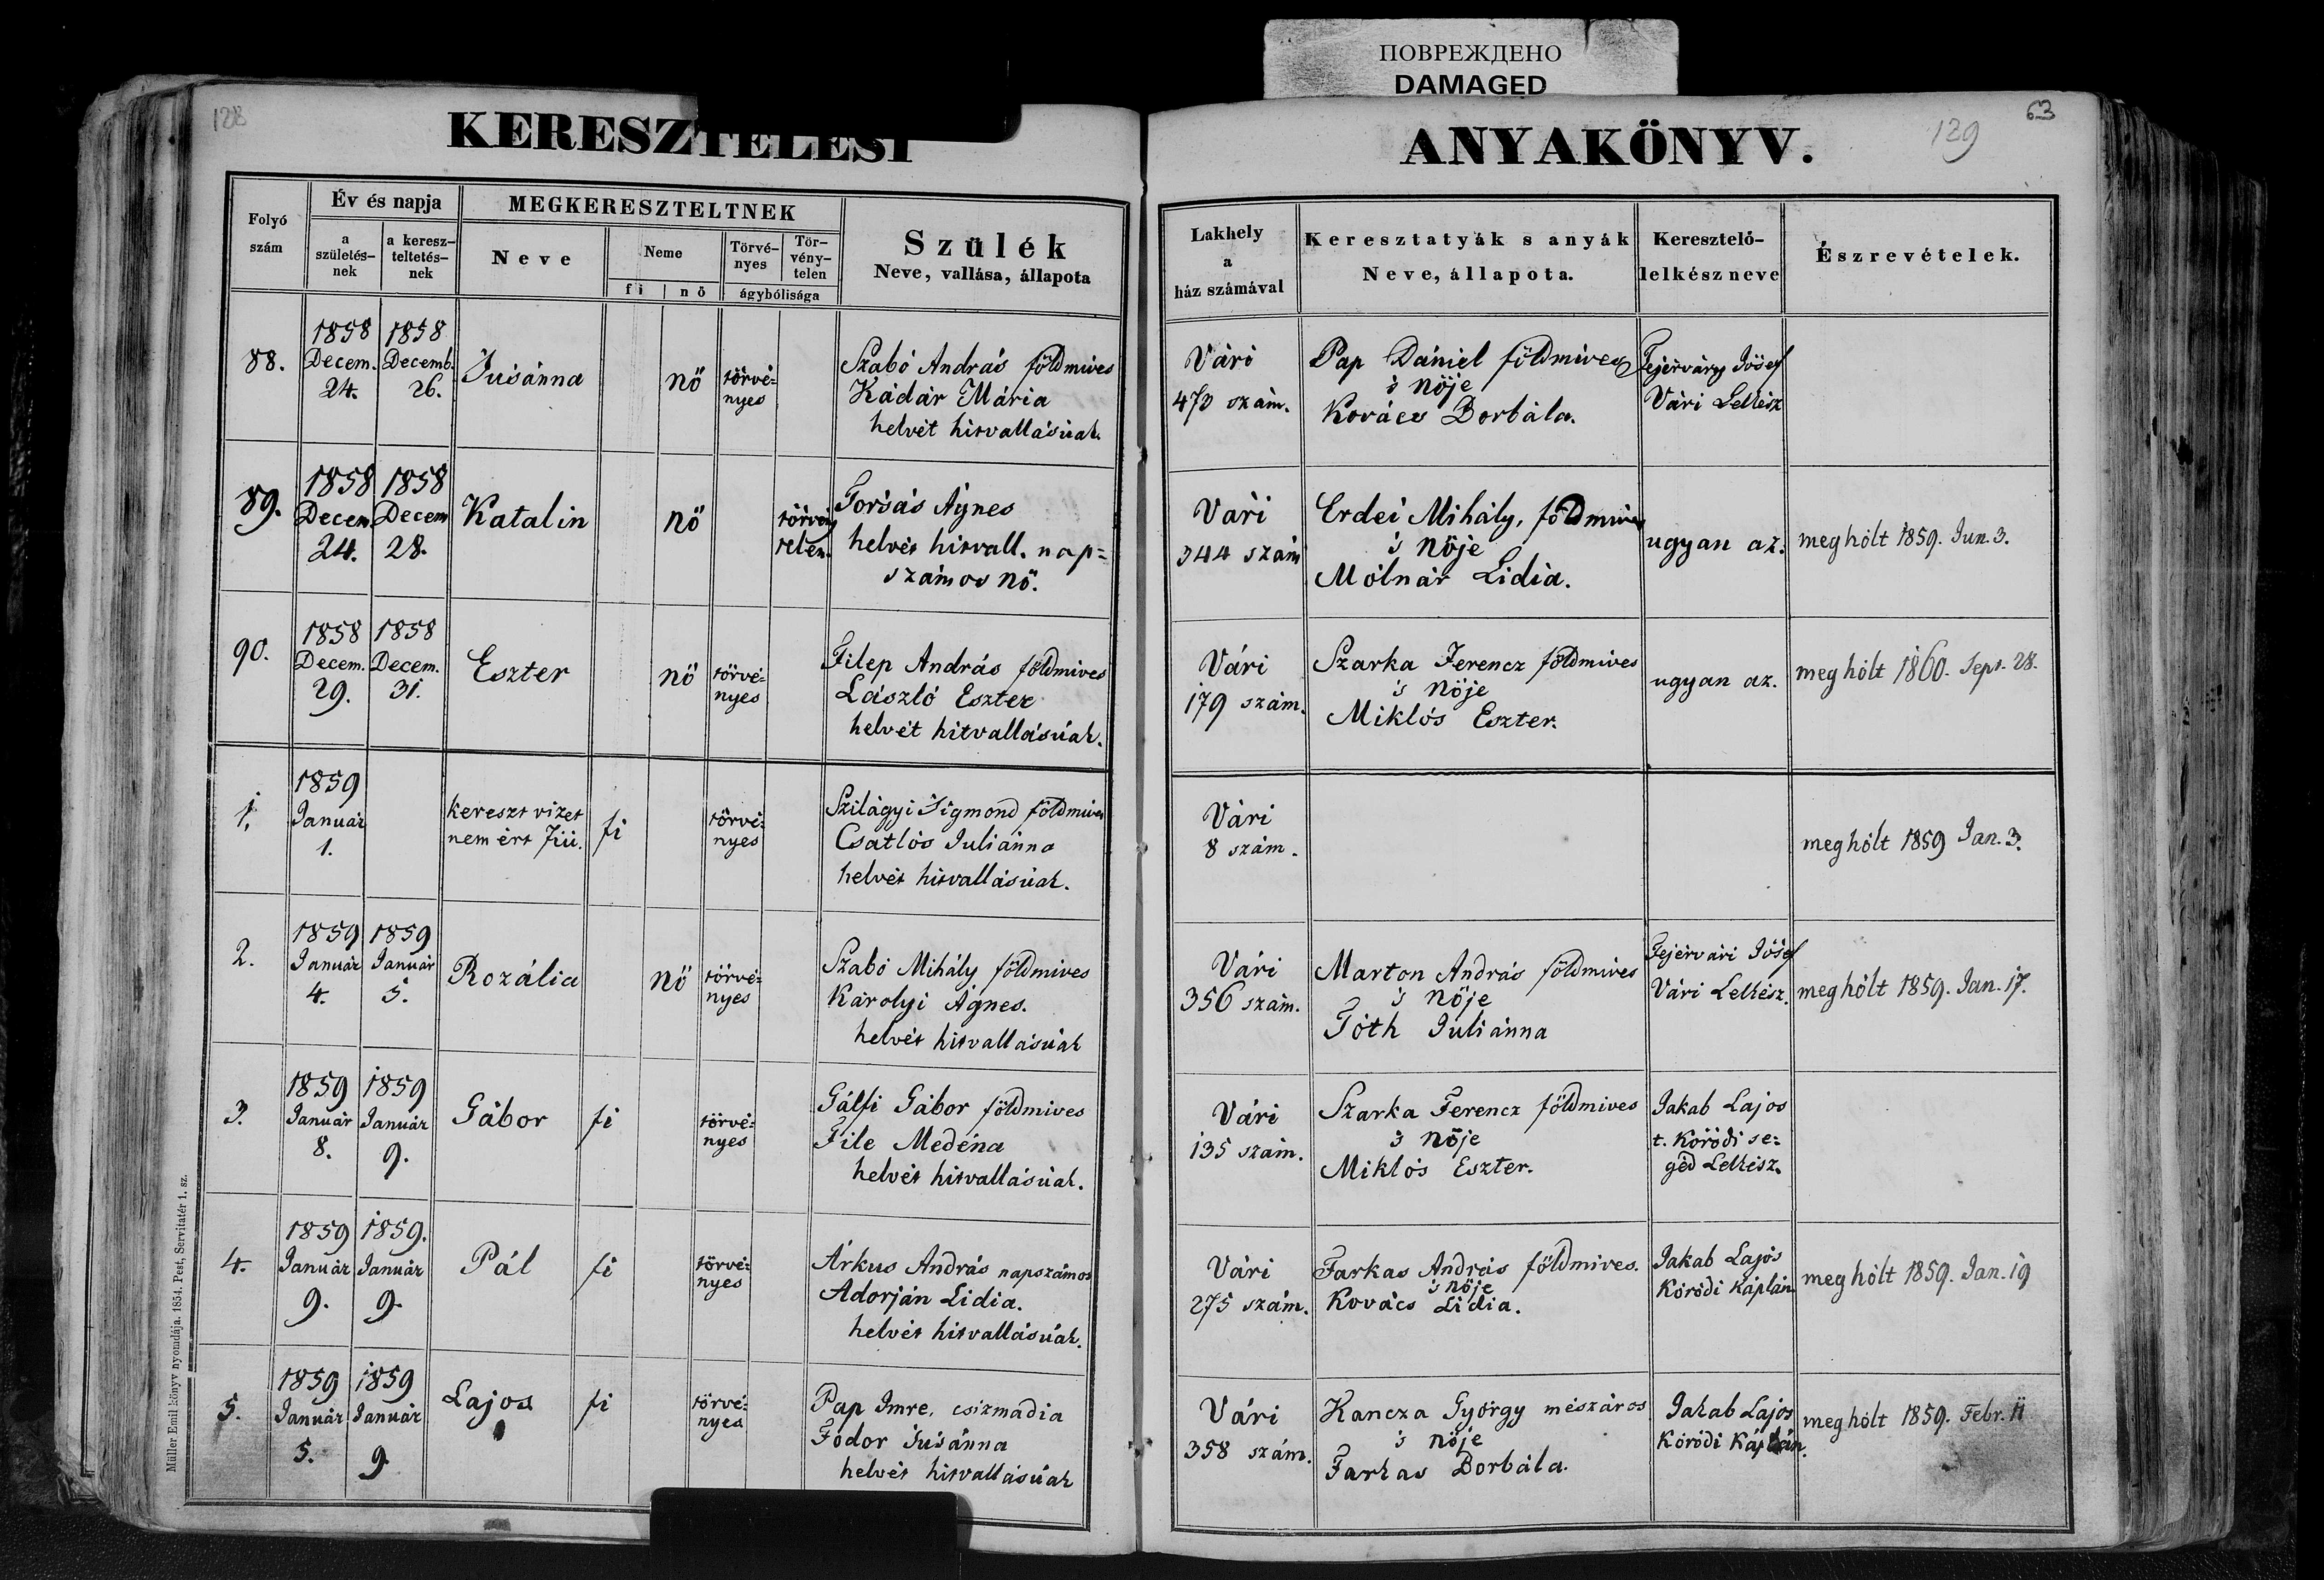 ПОВРЕЖДЕНО
DAMAGED
128
KERESZTELESI
ANYAKÖNYV.
139
63
Folyó
szám
Év és napja
a
születés-
nek
a keresz-
teltetés-
nek
MEGKERESZTELTNEK
Neve
Neme
fi | nö
Törvé-
nyes
Tör-
vény-
telen
ágybólisága
Szülék
Neve, vallása, állapota
Lakhely
a
ház számával
Keresztatyák s anyák
Neve, állapota.
Keresztelő-
lelkész neve
Észrevételek.
88.
1858
Decem.
24.
1858
Decemb.
26.
Susánna
nö
törvé-
nyes
Szabó András földmives
Kádár Mária
helvét hitvallásúak.
Vári
473 szám.
Pap Dániel földmives
's nöje
Kovács Borbála.
Fejérváry Jósef
Vári Lelkész
89.
1858
Decem
24.
1858
Decem
28.
Katalin
nö
törvény
telen.
Forsás Ágnes
helvét hitvall. nap=
számos nö.
Vári
344 szám
Erdei Mihály, földmives
's nöje
Mólnár Lidia.
ugyan az.
meghólt 1859. Jun. 3.
90.
1858
Decem.
29.
1858
Decem.
31.
Eszter
nö
törvé-
nyes
Filep András földmives
László Eszter
helvét hitvallásúak.
Vári
179 szám.
Szarka Ferencz földmives
's nöje
Miklós Eszter.
ugyan az.
meghólt 1860. Sept. 28.
1.
1859
Január
1.
kereszt vizet
nem ért Fiú.
fi
törvé-
nyes
Szilágyi Sigmond földmives
Csatlós Juliánna
helvét hitvallásúak.
Vári
8 szám.
meghólt 1859 Jan. 3.
2.
1859
Január
4.
1859
Január
5.
Rozália
nö
törvé-
nyes
Szabó Mihály földmives
Károlyi Ágnes.
helvét hitvallásúak
Vári
356 szám.
Marton András földmives
's nöje
Tóth Juliánna
Fejérvári Jósef
Vári Lelkész.
meghólt 1859. Jan. 17.
3.
1859
Január
8.
1859
Január
9.
Gábor
fi
törvé-
nyes
Gálfi Gábor földmives
File Medéna
helvét hitvallásúak.
Vári
135 szám.
Szarka Ferencz földmives
's nöje
Miklós Eszter.
Jakab Lajos
t. Koródi se-
géd Lelkész.
4.
1859
Január
9.
1859.
Január
9.
Pál
fi
törvé-
nyes
Árkus András napszámos
Adorján Lidia.
helvét hitvallásúak.
Vári
275 szám.
Farkas András földmives.
's nöje
Kovács Lidia.
Jakab Lajós
Koródi Káplán
meghólt 1859. Jan. 19
5.
1859
Január
5.
1859
Január
9.
Lajos
fi
törvé-
nyes
Pap Imre, csizmadia
Fodor Susánna
helvét hitvallásúak
Vári
358 szám.
Kancza György mészáros
's nöje
Farkas Borbála.
Jakab Lajos
Koródi Káplán.
meghólt 1859. Febr. 11
Müller Emil könyv nyomdája. 1854. Pest, Servitatér 1. sz.